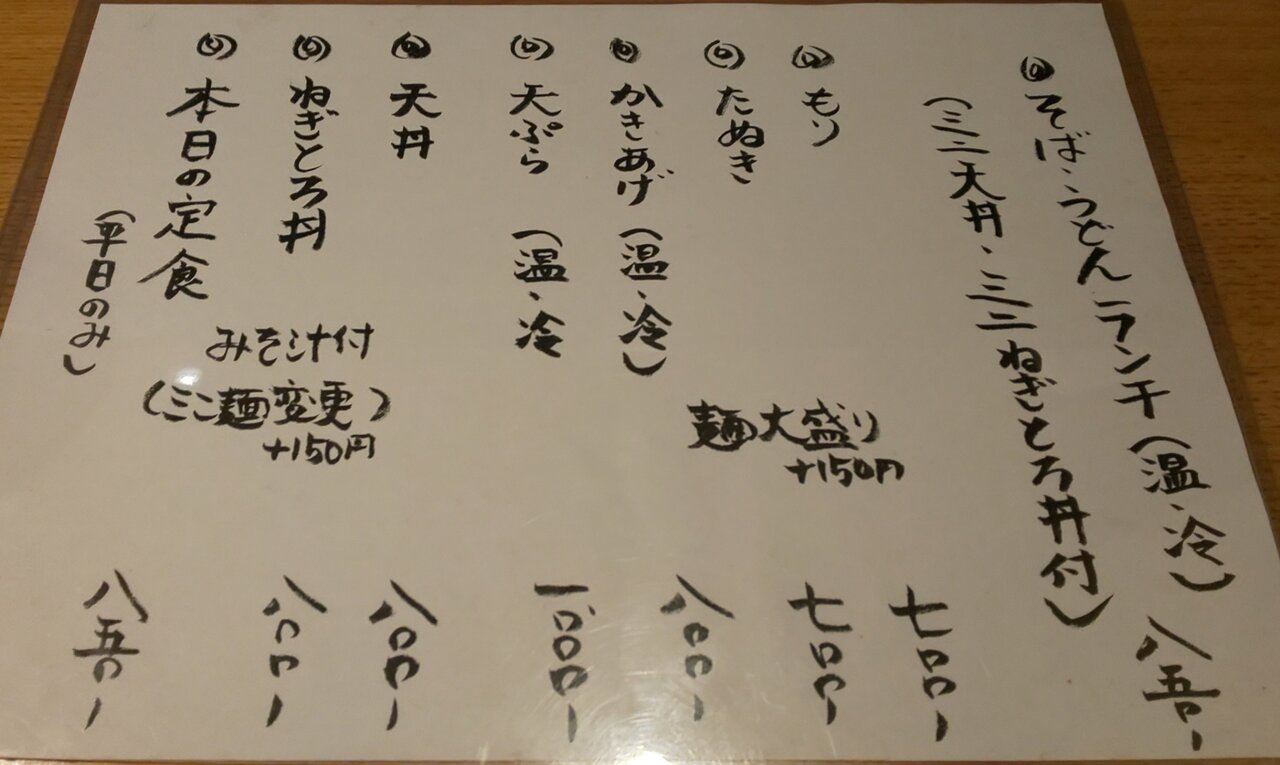 そば・うどんランチ(温・冷) 八五〇-
(ミニ天丼・ミニねぎとろ丼付)
もり 七〇〇-
たぬき 七〇〇-
麺大盛り
+150円
かきあげ(温・冷) 八〇〇-
天ぷら(温・冷 1000-
天丼 八〇〇-
ねぎとろ丼 八〇〇-
みそ汁付
(ミニ麺変更)
+150円
本日の定食 八五〇-
(平日のみ)